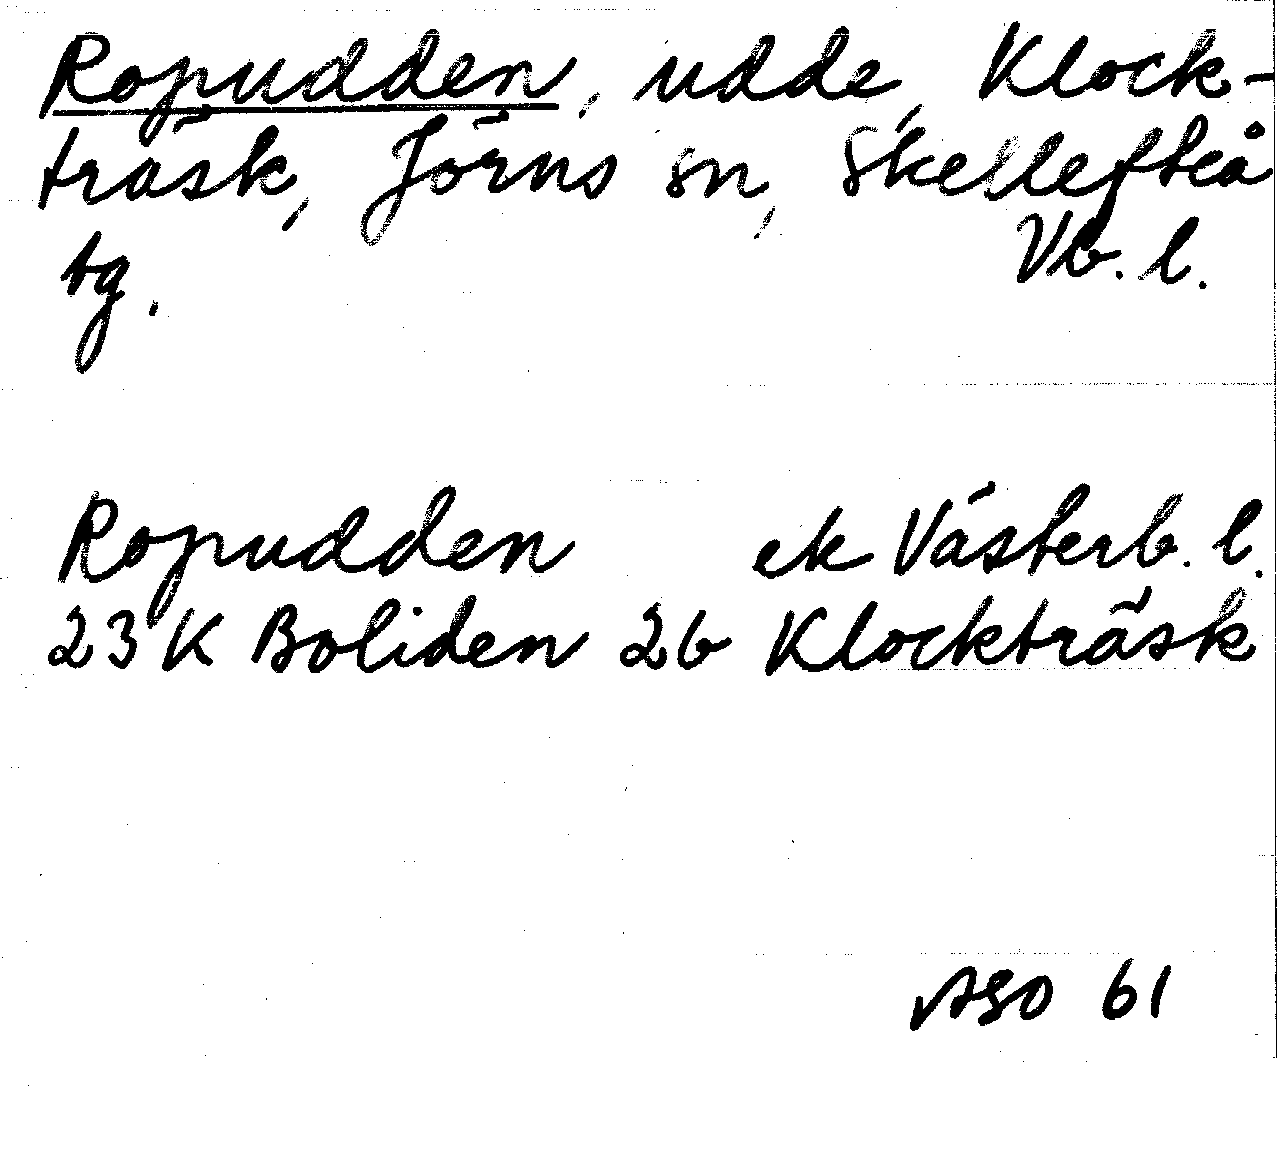 Ropudden, udde, Klock-
träsk, Jörns sn, Skellefteå
tg. Vb. l.
Ropudden ek Västerb. l.
23 K Boliden 2b Klockträsk
ASO 61